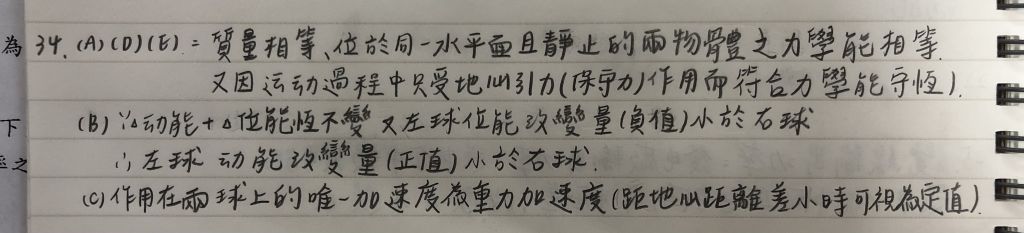 為 34. (A)(D)(E) = 質量相等、位於同一水平面且靜止的兩物體之力學能相等.
又因运动過程中只受地心引力(保守力)作用而符合力學能守恆).
下 (B) ∵△动能+△位能恆不變 又左球位能改變量(負值)小於右球
之 ∴左球 动能改變量(正值)小於右球.
(C)作用在兩球上的唯一加速度為重力加速度(距地心距離差小時可視為定值).